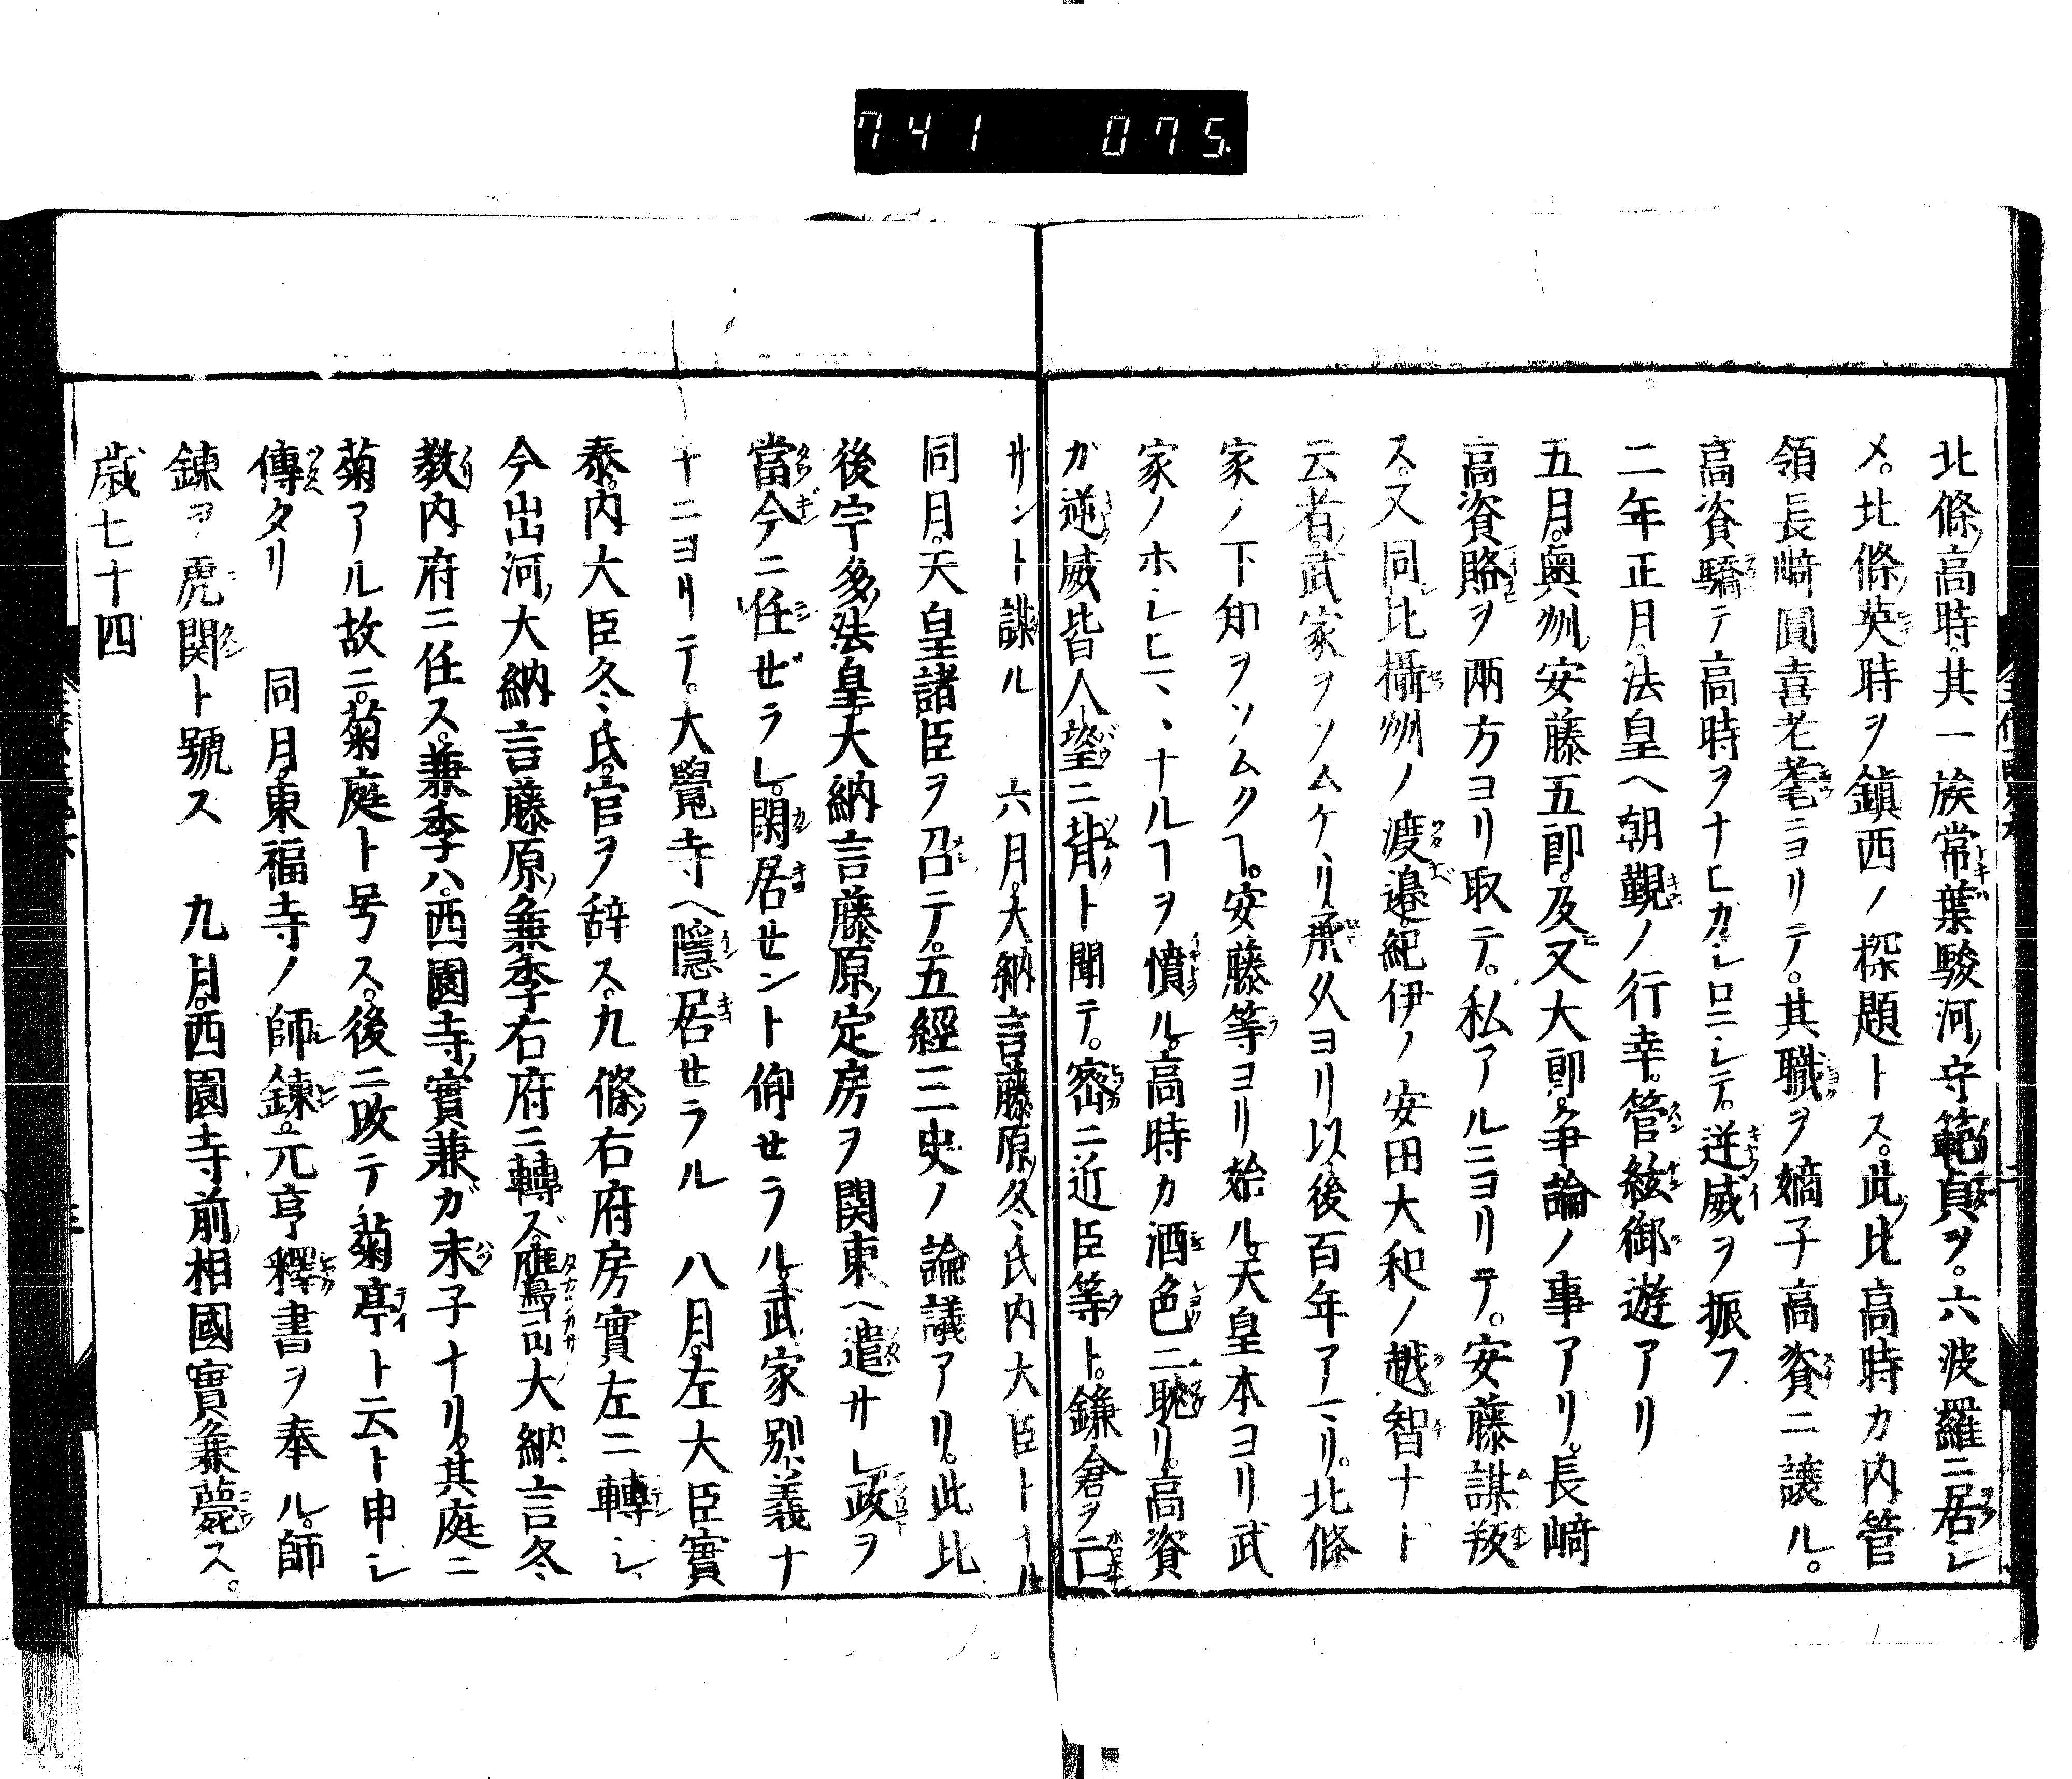 741 075
北條高時。其一族常葉駿河ノ守範貞ヲ。六波羅ニ居シ
メ。北條英時ヲ鎮西ノ探題トス。此比高時カ内管
領長﨑圓喜老耄ニヨリテ。其職ヲ嫡子高資ニ譲ル。
高資驕テ高時ヲナヒカシロニシテ。逆威ヲ振フ
二年正月。法皇ヘ朝覲ノ行幸。管絃御遊アリ
五月。奥州ノ安藤五郎。及又大郎争論ノ事アリ。長﨑
高資賂ヲ兩方ヨリ取テ。私アルニヨリテ。安藤謀叛
ス。又同比攝州ノ渡邉。紀伊ノ安田大和ノ越智ナド
云者。武家ヲソムケリ。承久ヨリ以後百年アマリ。北條
家ノ下知ヲソムクヿ。安藤等ヨリ始ル。天皇本ヨリ武
家ノホシヒマヽナルヿヲ憤ル。高時カ酒色ニ耽リ。高資
ガ逆威皆人望ニ背ト聞テ。密ニ近臣等ト。鎌倉ヲ亡
サント謀ル　六月。大納言藤原ノ冬氏内大臣トナル
同月。天皇諸臣ヲ召テ。五經三史ノ論議アリ。此比
後宇多ノ法皇。大納言藤原ノ定房ヲ関東ヘ遣サレ政ヲ
當今ニ任ゼラレ。閑居セント仰セラル。武家別義ナ
キニヨリテ。大覺寺ヘ隱居セラル　八月。左大臣實
泰。内大臣冬氏。官ヲ辞ス。九條ノ右府房實左ニ轉シ、
今出河ノ大納言藤原ノ兼季右府ニ轉ズ。鷹司ノ大納言冬
教内府ニ任ス。兼季ハ。西園寺ノ實兼ガ末子ナリ。其庭ニ
菊アル故ニ。菊庭ト号ス。後ニ改テ菊亭ト云ト申シ
傳タリ　同月。東福寺ノ師錬。元亨釋書ヲ奉ル。師
錬ヲ虎関ト號ス　九月。西園寺前ノ相國實兼薨ス。
歳七十四